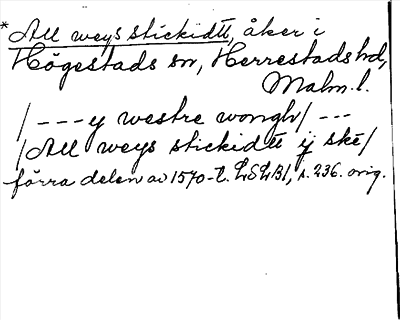 *All weys stickidtt, åker i
Högestads sn, Herrestads hd,
Malm. l.
/ - - - y westre wongh / - - -
/ All weys stickidtt ij ske /
förra delen av 1570-t. LSLB1, s. 236. orig.